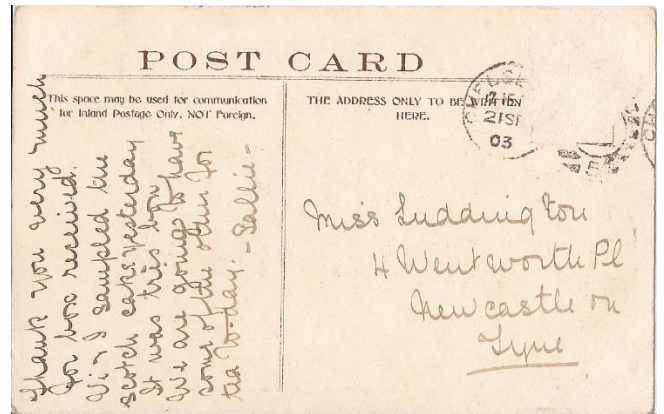 POST CARD
This space may be used for communication
for Inland Postage Only. NOT Foreign.
THE ADDRESS ONLY TO BE WRITTEN
HERE.
Thank you very much
for box received.
Vi & I sampled the
scotch cake yesterday
It was trés bon
We are going to have
some of the other for
tea to-day. - Sallie -
Miss Luddington
4 Wentworth Pl
Newcastle on
Tyne
CHELSEA
21 SP
03